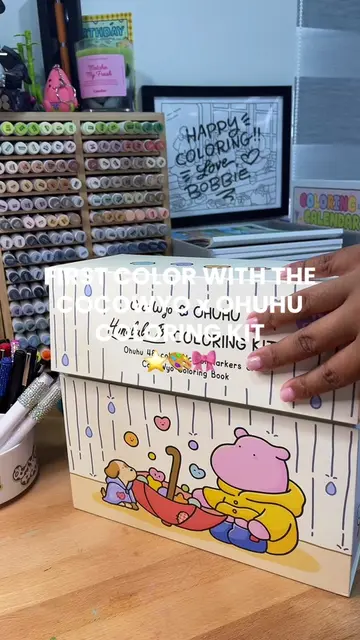 BIRTHDAY
Matcha
My Fresh
HAPPY
COLORING!!
Love
BOBBIE
COLORING
CALENDAR
FIRST COLOR WITH THE
COCOWYO x OHUHU
COLORING KIT
⭐🎨🎀
OHUHU
COLORING KIT
Ohuhu 48
markers
Coloring Book